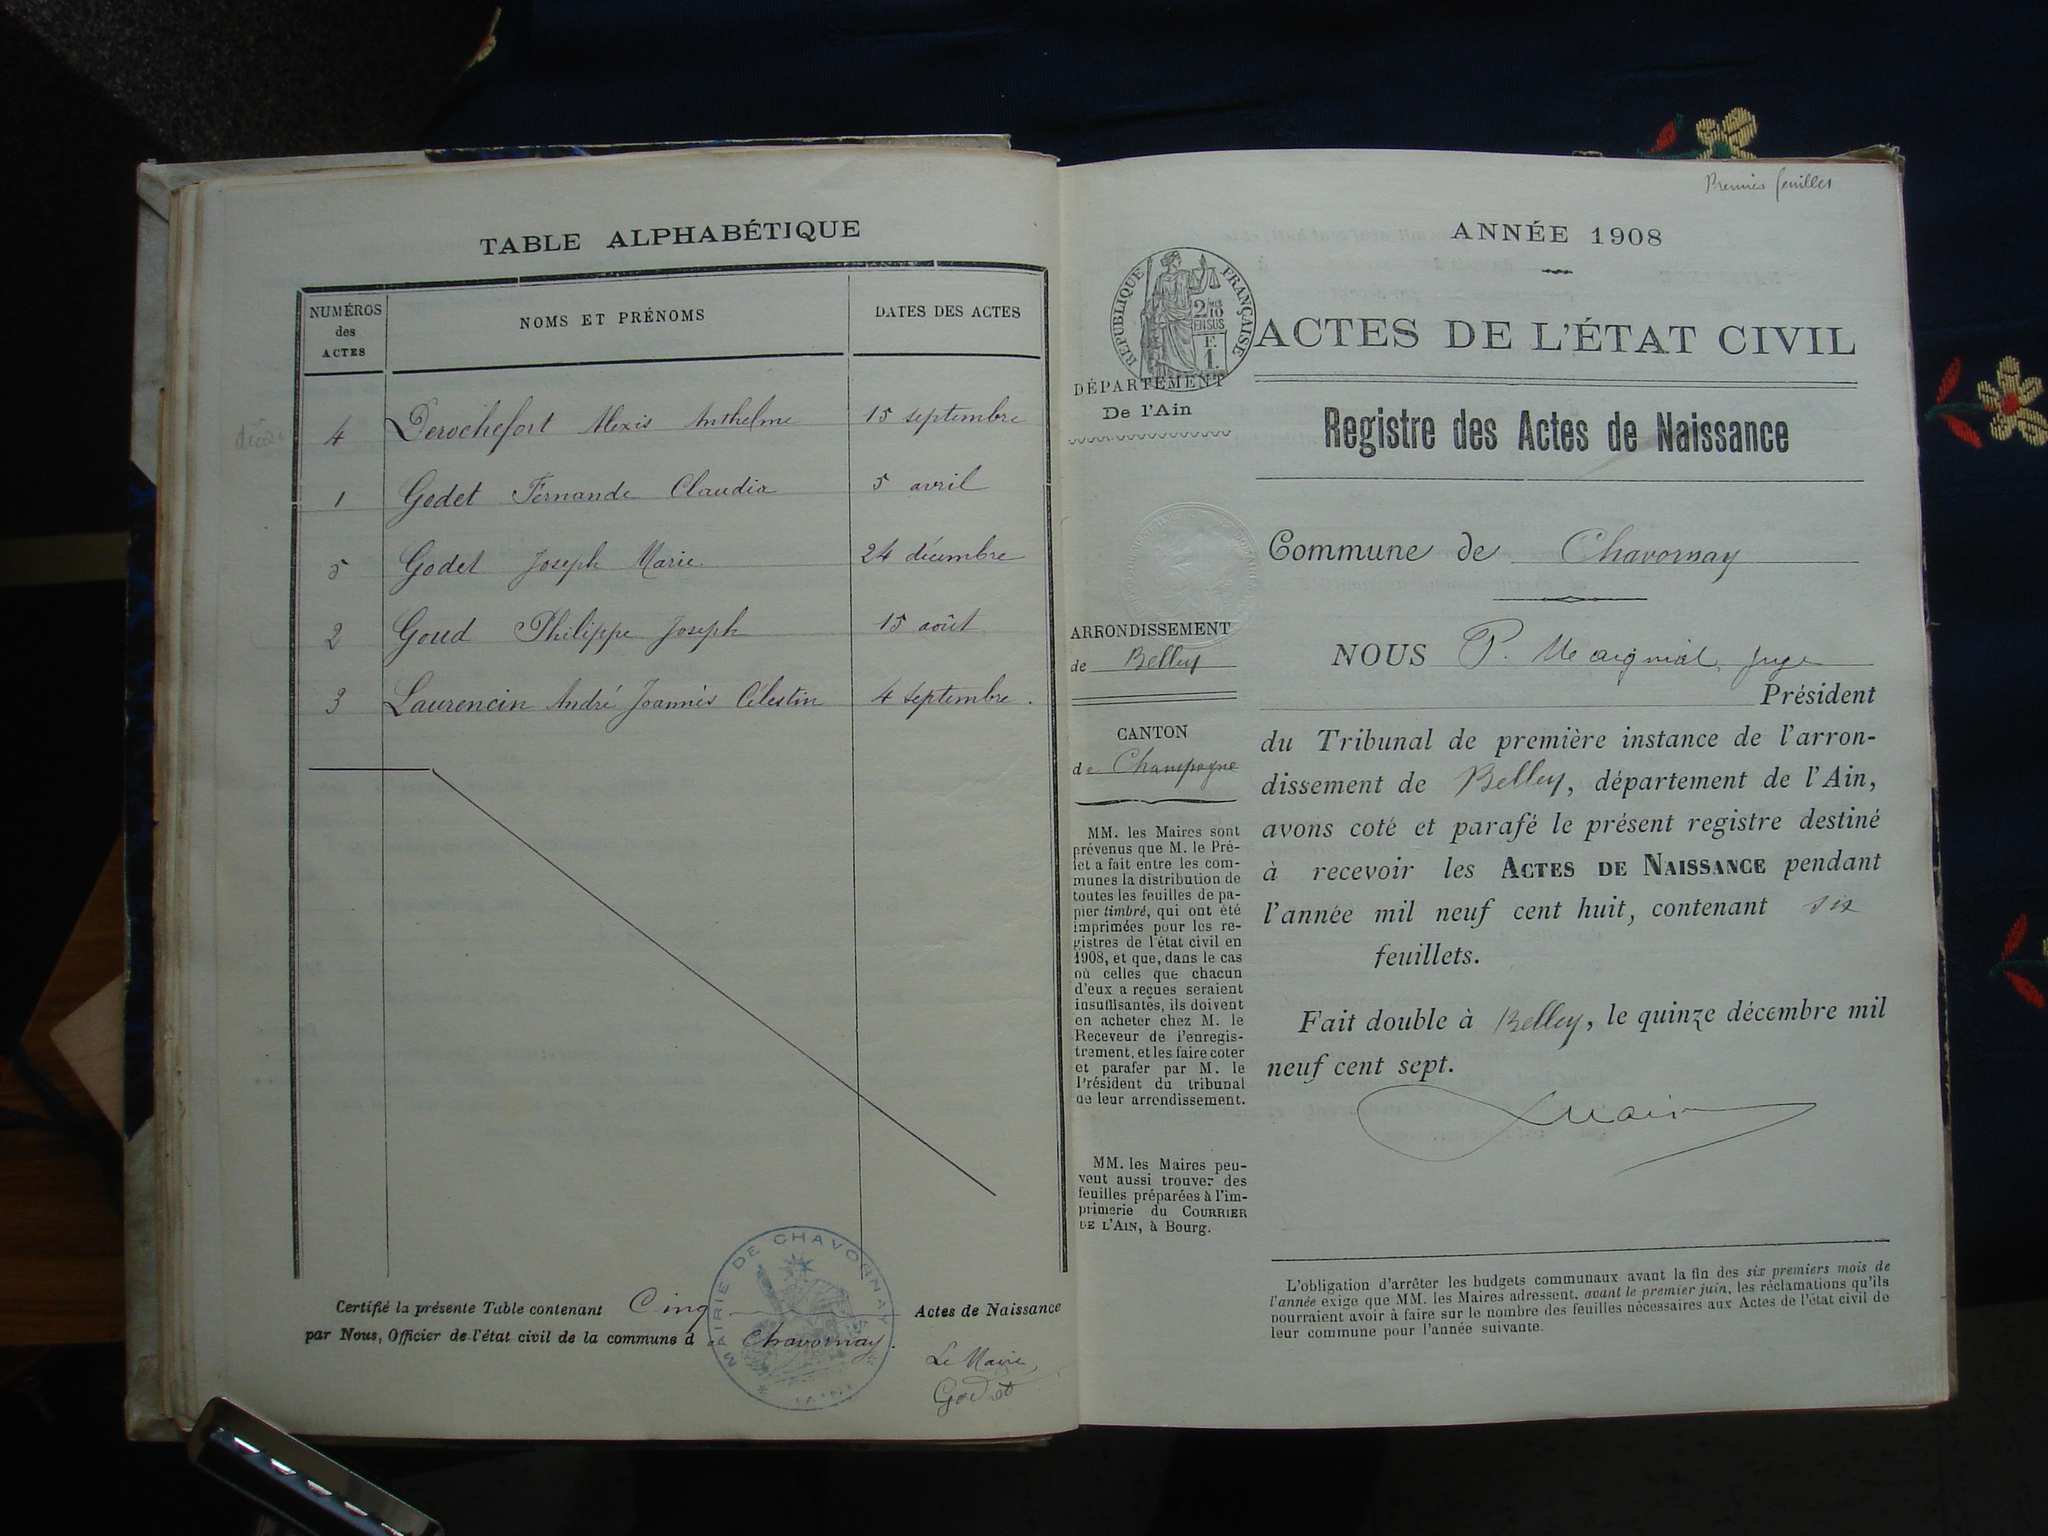 TABLE ALPHABÉTIQUE
NUMÉROS des ACTES
NOMS ET PRÉNOMS
DATES DES ACTES
4 Derochefort Alexis Anthelme 15 septembre
1 Godet Fernande Claudia 5 avril
5 Godet Joseph Marie 24 décembre
2 Goud Philippe Joseph 15 août
3 Laurencin André Joannès Célestin 4 septembre.
Certifié la présente Table contenant Cinq Actes de Naissance
par Nous, Officier de l'état civil de la commune de Chavornay.
MAIRIE DE CHAVORNAY
Le Maire,
Godet
Premier feuillet
ANNÉE 1908
RÉPUBLIQUE FRANÇAISE
ACTES DE L'ÉTAT CIVIL
DÉPARTEMENT
De l'Ain
Registre des Actes de Naissance
Commune de Chavornay
ARRONDISSEMENT
de Belley
CANTON
de Champagne
MM. les Maires sont
prévenus que M. le Pré-
fet a fait entre les com-
munes la distribution de
toutes les feuilles de pa-
pier timbré, qui ont été
imprimées pour les re-
gistres de l'état civil en
1908, et que, dans le cas
où celles que chacun
d'eux a reçues seraient
insuffisantes, ils doivent
en acheter chez M. le
Receveur de l'enregis-
trement, et les faire coter
et parafer par M. le
Président du tribunal
de leur arrondissement.
MM. les Maires peu-
vent aussi trouver des
feuilles préparées à l'im-
primerie du COURRIER
DE L'AIN, à Bourg.
NOUS P. juge
Président
du Tribunal de première instance de l'arron-
dissement de Belley, département de l'Ain,
avons coté et parafé le présent registre destiné
à recevoir les ACTES DE NAISSANCE pendant
l'année mil neuf cent huit, contenant six
feuillets.
Fait double à Belley, le quinze décembre mil
neuf cent sept.
L'obligation d'arrêter les budgets communaux avant la fin des six premiers mois de
l'année exige que MM. les Maires adressent, avant le premier juin, les réclamations qu'ils
pourraient avoir à faire sur le nombre des feuilles nécessaires aux Actes de l'état civil de
leur commune pour l'année suivante.